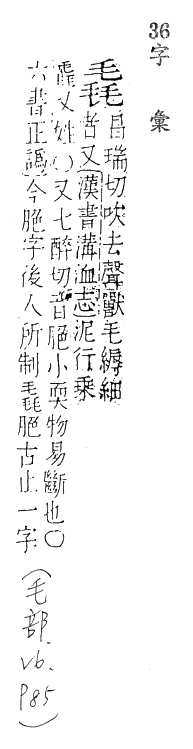 36 字彙
毳 昌瑞切吹去聲獸毛縟細
者又(漢書溝洫志)泥行乘
毳又姓()又七醉切音脃小耎物易斷也〇
六書正譌今脃字後人所制毳脃古止一字
(毛部. v6. P85)